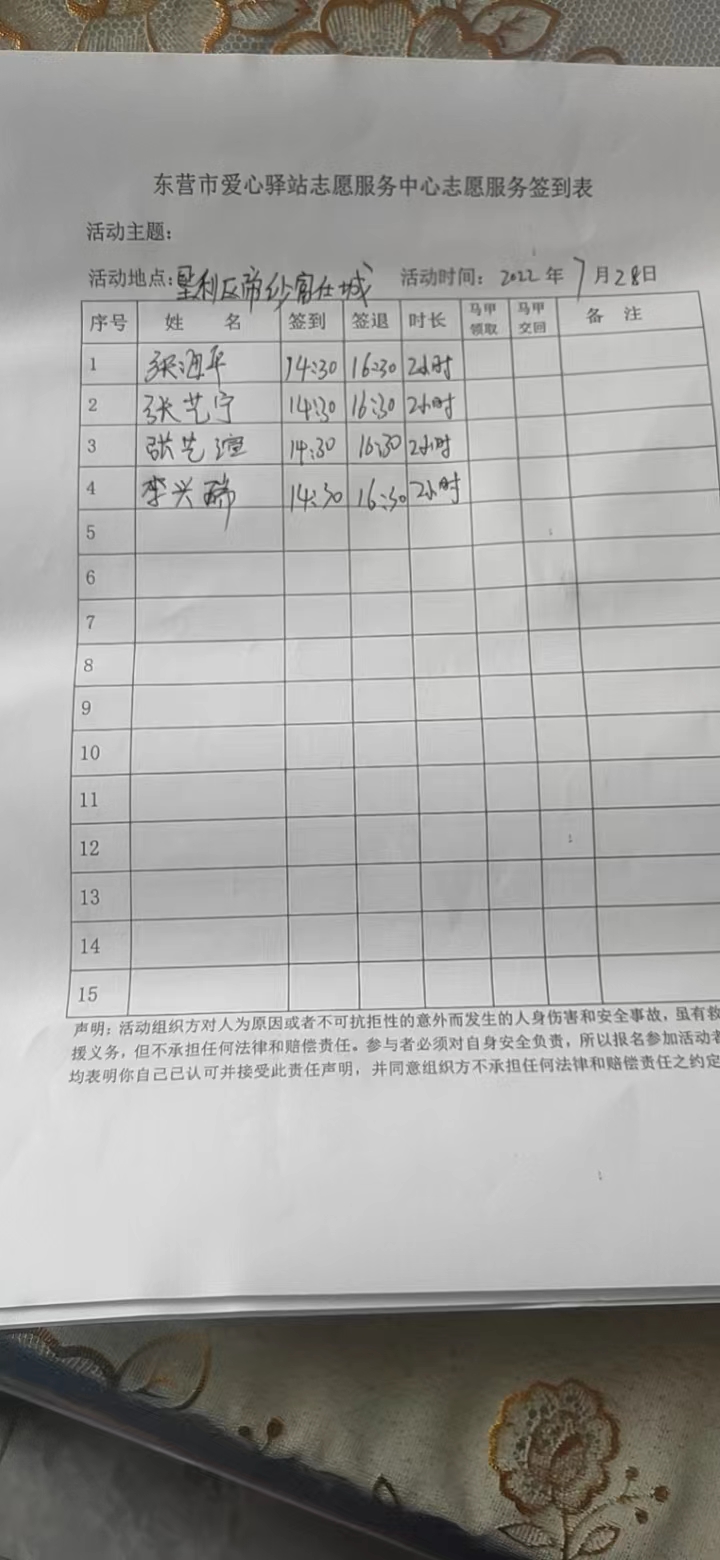 东营市爱心驿站志愿服务中心志愿服务签到表
活动主题:
活动地点:垦利区帝纱富仕城 活动时间: 2022 年 7 月 28 日
序号 姓 名 签到 签退 时长 马甲领取 马甲交回 备 注
1 张海平 14:30 16:30 2小时
2 张艺宁 14:30 16:30 2小时
3 张艺渲 14:30 16:30 2小时
4 李兴瑞 14:30 16:30 2小时
5
6
7
8
9
10
11
12
13
14
15
声明:活动组织方对人为原因或者不可抗拒性的意外而发生的人身伤害和安全事故,虽有救
援义务,但不承担任何法律和赔偿责任。参与者必须对自身安全负责,所以报名参加活动者
均表明你自己已认可并接受此责任声明,并同意组织方不承担任何法律和赔偿责任之约定